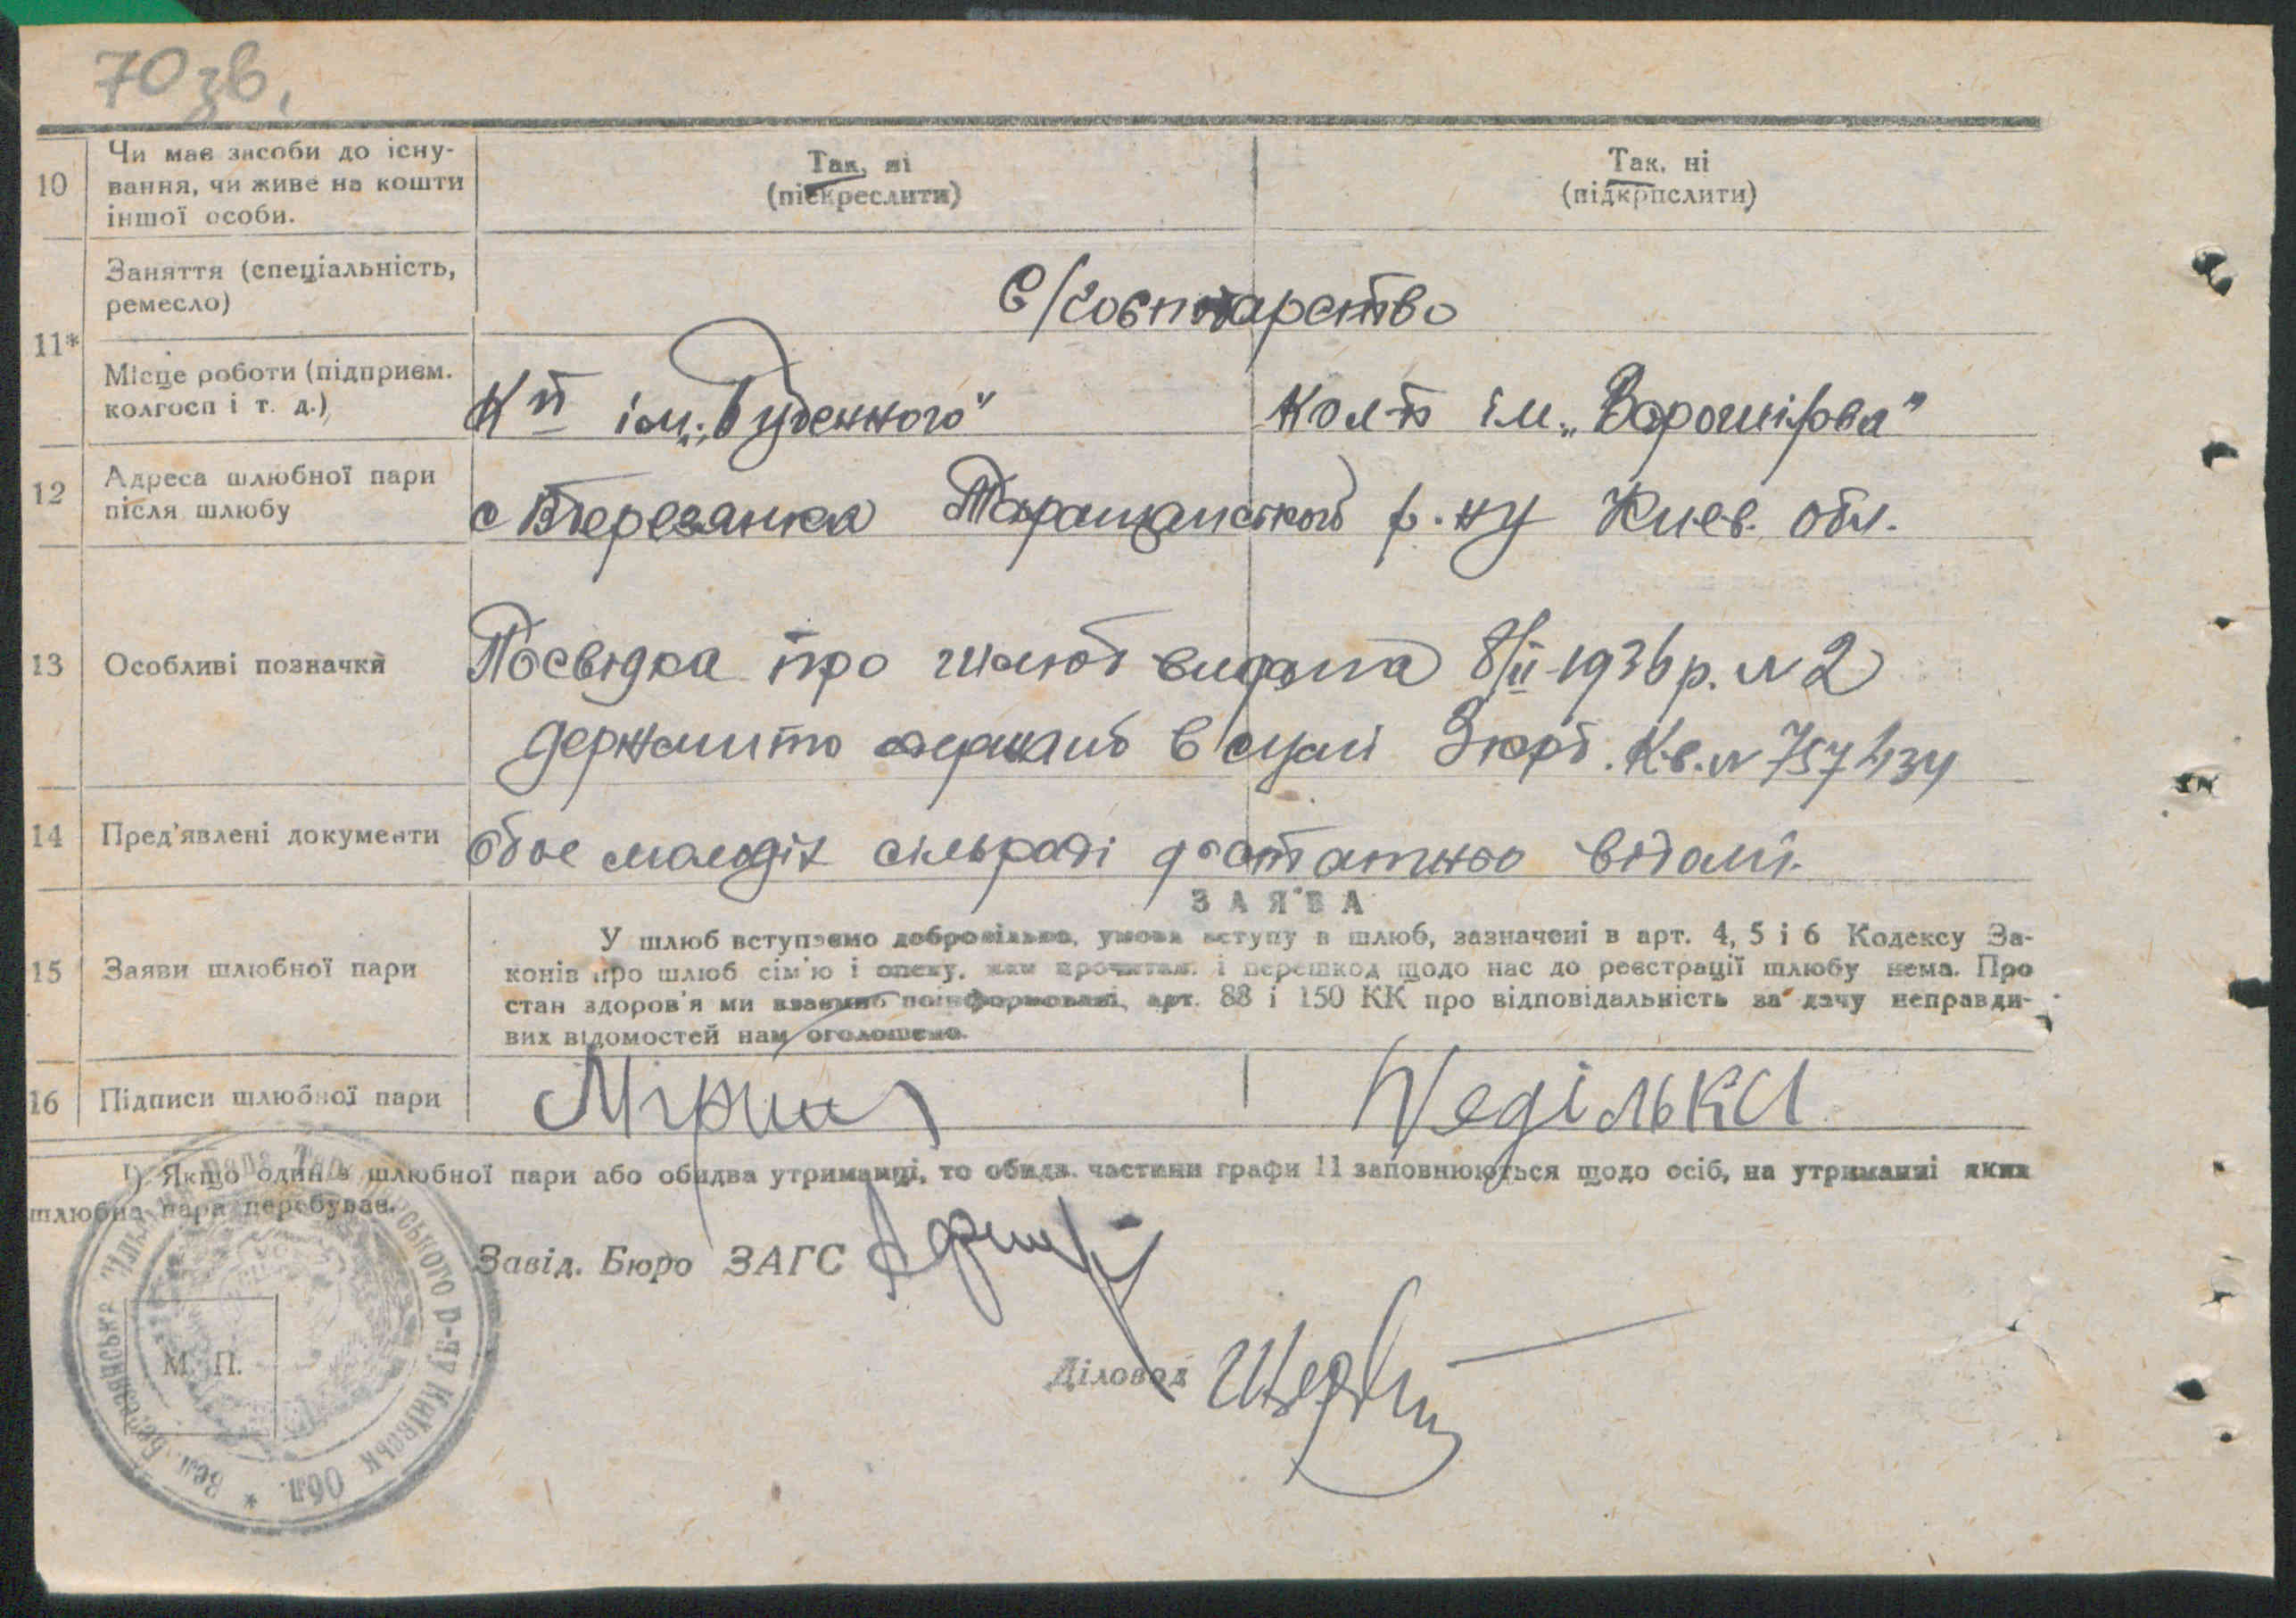 70 зв.
10 Чи має засоби до існу-
вання, чи живе на кошти
іншої особи.
Так, ні
(підкреслити)
Так, ні
(підкрпслити)
11*
Заняття (спеціальність,
ремесло)
С/господарство
Місце роботи (підприєм.
колгосп і т. д.)
ім. „Буденного"
ім. „Ворошілова"
12 Адреса шлюбної пари
після шлюбу
с Березянка Таращанського р.ну Киев. обл.
13 Особливі позначки
Посвідка про шлюб видата 8/II-1936 р. № 2
держмито в сумі 3 крб. Кв. № 757434
14 Пред'явлені документи
обоє молодіх сільраді достатньо відомі.
ЗАЯВА
15 Заяви шлюбної пари
У шлюб вступаємо добровільно, умови вступу в шлюб, зазначені в арт. 4, 5 і 6 Кодексу За-
конів про шлюб сім'ю і опеку, нам прочитан. і перешкод щодо нас до реєстрації шлюбу нема. Про
стан здоров'я ми взаємно поінформовані, арт. 88 і 150 КК про відповідальність за дачу неправди-
вих відомостей нам оголошено.
16 Підписи шлюбної пари
Неділька
1) Якщо один з шлюбної пари або обидва утриманці, то обидв. частини графи 11 заповнюються щодо осіб, на утриманні яких
шлюбна пара перебуває.
Завід. Бюро ЗАГС
Діловод
М. П.
Вел. Березянська сільська рада Таращанського р-ну Київськ Обл.